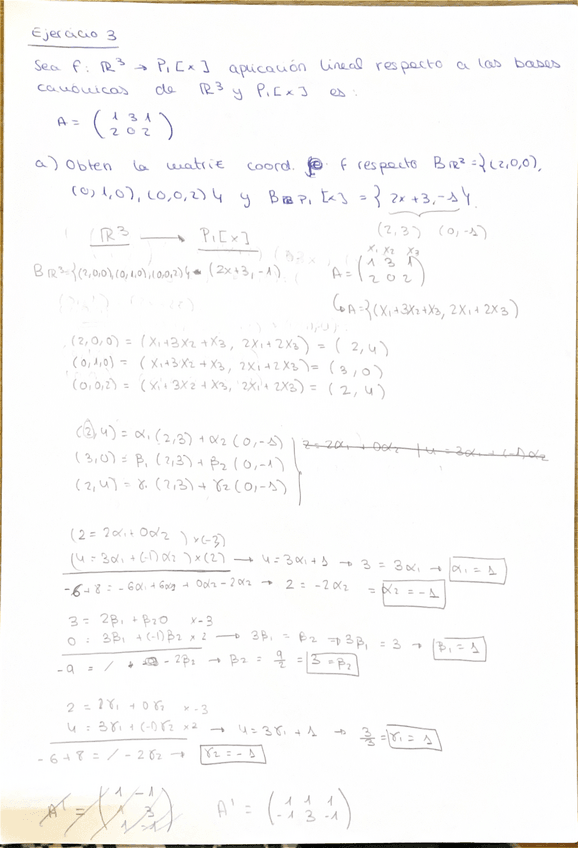 Ejercicio 3
Sea f: ℝ³ → P₁[x] aplicación lineal respecto a las bases
canónicas de ℝ³ y P₁[x] es:
A = ( 1 3 1
2 0 2 )
a) Obten la matriz coord. f respecto Bℝ³ = {(2,0,0),
(0,1,0), (0,0,2)} y B P₁[x] = { 2x+3, -1}.
(2,3) (0,-1)
ℝ³ → P₁[x]
Bℝ³={(2,0,0),(0,1,0),(0,0,2)} (2x+3, -1)
x₁ x₂ x₃
A = ( 1 3 1
2 0 2 )
↳ A={(x₁+3x₂+x₃, 2x₁+2x₃)
(2,0,0) = (x₁+3x₂+x₃, 2x₁+2x₃) = (2,4)
(0,1,0) = (x₁+3x₂+x₃, 2x₁+2x₃) = (3,0)
(0,0,2) = (x₁+3x₂+x₃, 2x₁+2x₃) = (2,4)
(2,4) = α₁(2,3) + α₂(0,-1) 2=2α₁+0α₂ | 4=3α₁+(-1)α₂
(3,0) = β₁(2,3) + β₂(0,-1)
(2,4) = γ₁(2,3) + γ₂(0,-1)
(2 = 2α₁+0α₂ )×(-3)
(4 = 3α₁+(-1)α₂)×(2) → 4=3α₁+1 → 3=3α₁ → α₁=1
-6+8 = -6α₁+6α₂+0α₂-2α₂ → 2=-2α₂ = α₂=-1
3 = 2β₁+β₂0 ×-3
0 = 3β₁+(-1)β₂ ×2 → 3β₁=β₂ ⇒ 3β₁=3 → β₁=1
-9 = / -2β₂ → β₂ = 9/2 = 3=β₂
2 = 2γ₁+0γ₂ ×-3
4 = 3γ₁+(-1)γ₂ ×2 → 4=3γ₁+1 → 3/3=γ₁=1
-6+8 = / -2γ₂ → γ₂=-1
A' = ( 1 -1
1 3
1 -1 )
A' = ( 1 1 1
-1 3 -1 )